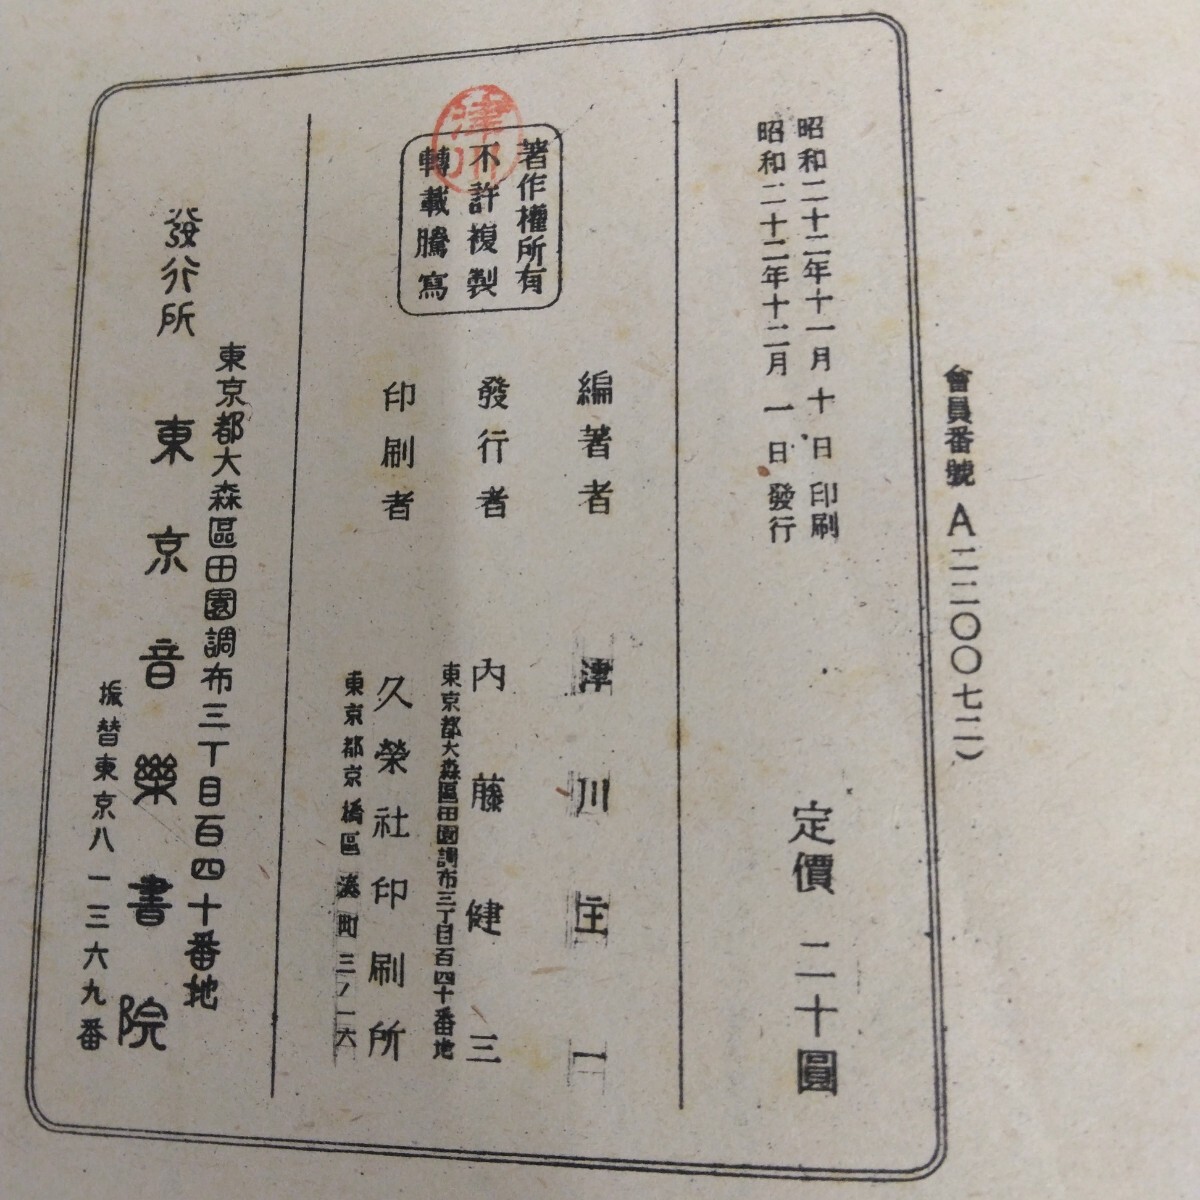 會員番號 A二二〇〇七二)
昭和二十二年十一月十日印刷
昭和二十二年十二月一日發行
定價 二十圓
著作權所有
不許複製
轉載騰寫
津川
編著者 津川主一
發行者 內藤健三
東京都大森區田園調布三丁目百四十番地
印刷者 久榮社印刷所
東京都京橋區湊町三ノ一六
東京都大森區田園調布三丁目百四十番地
發行所 東京音樂書院
振替東京八一三六九番